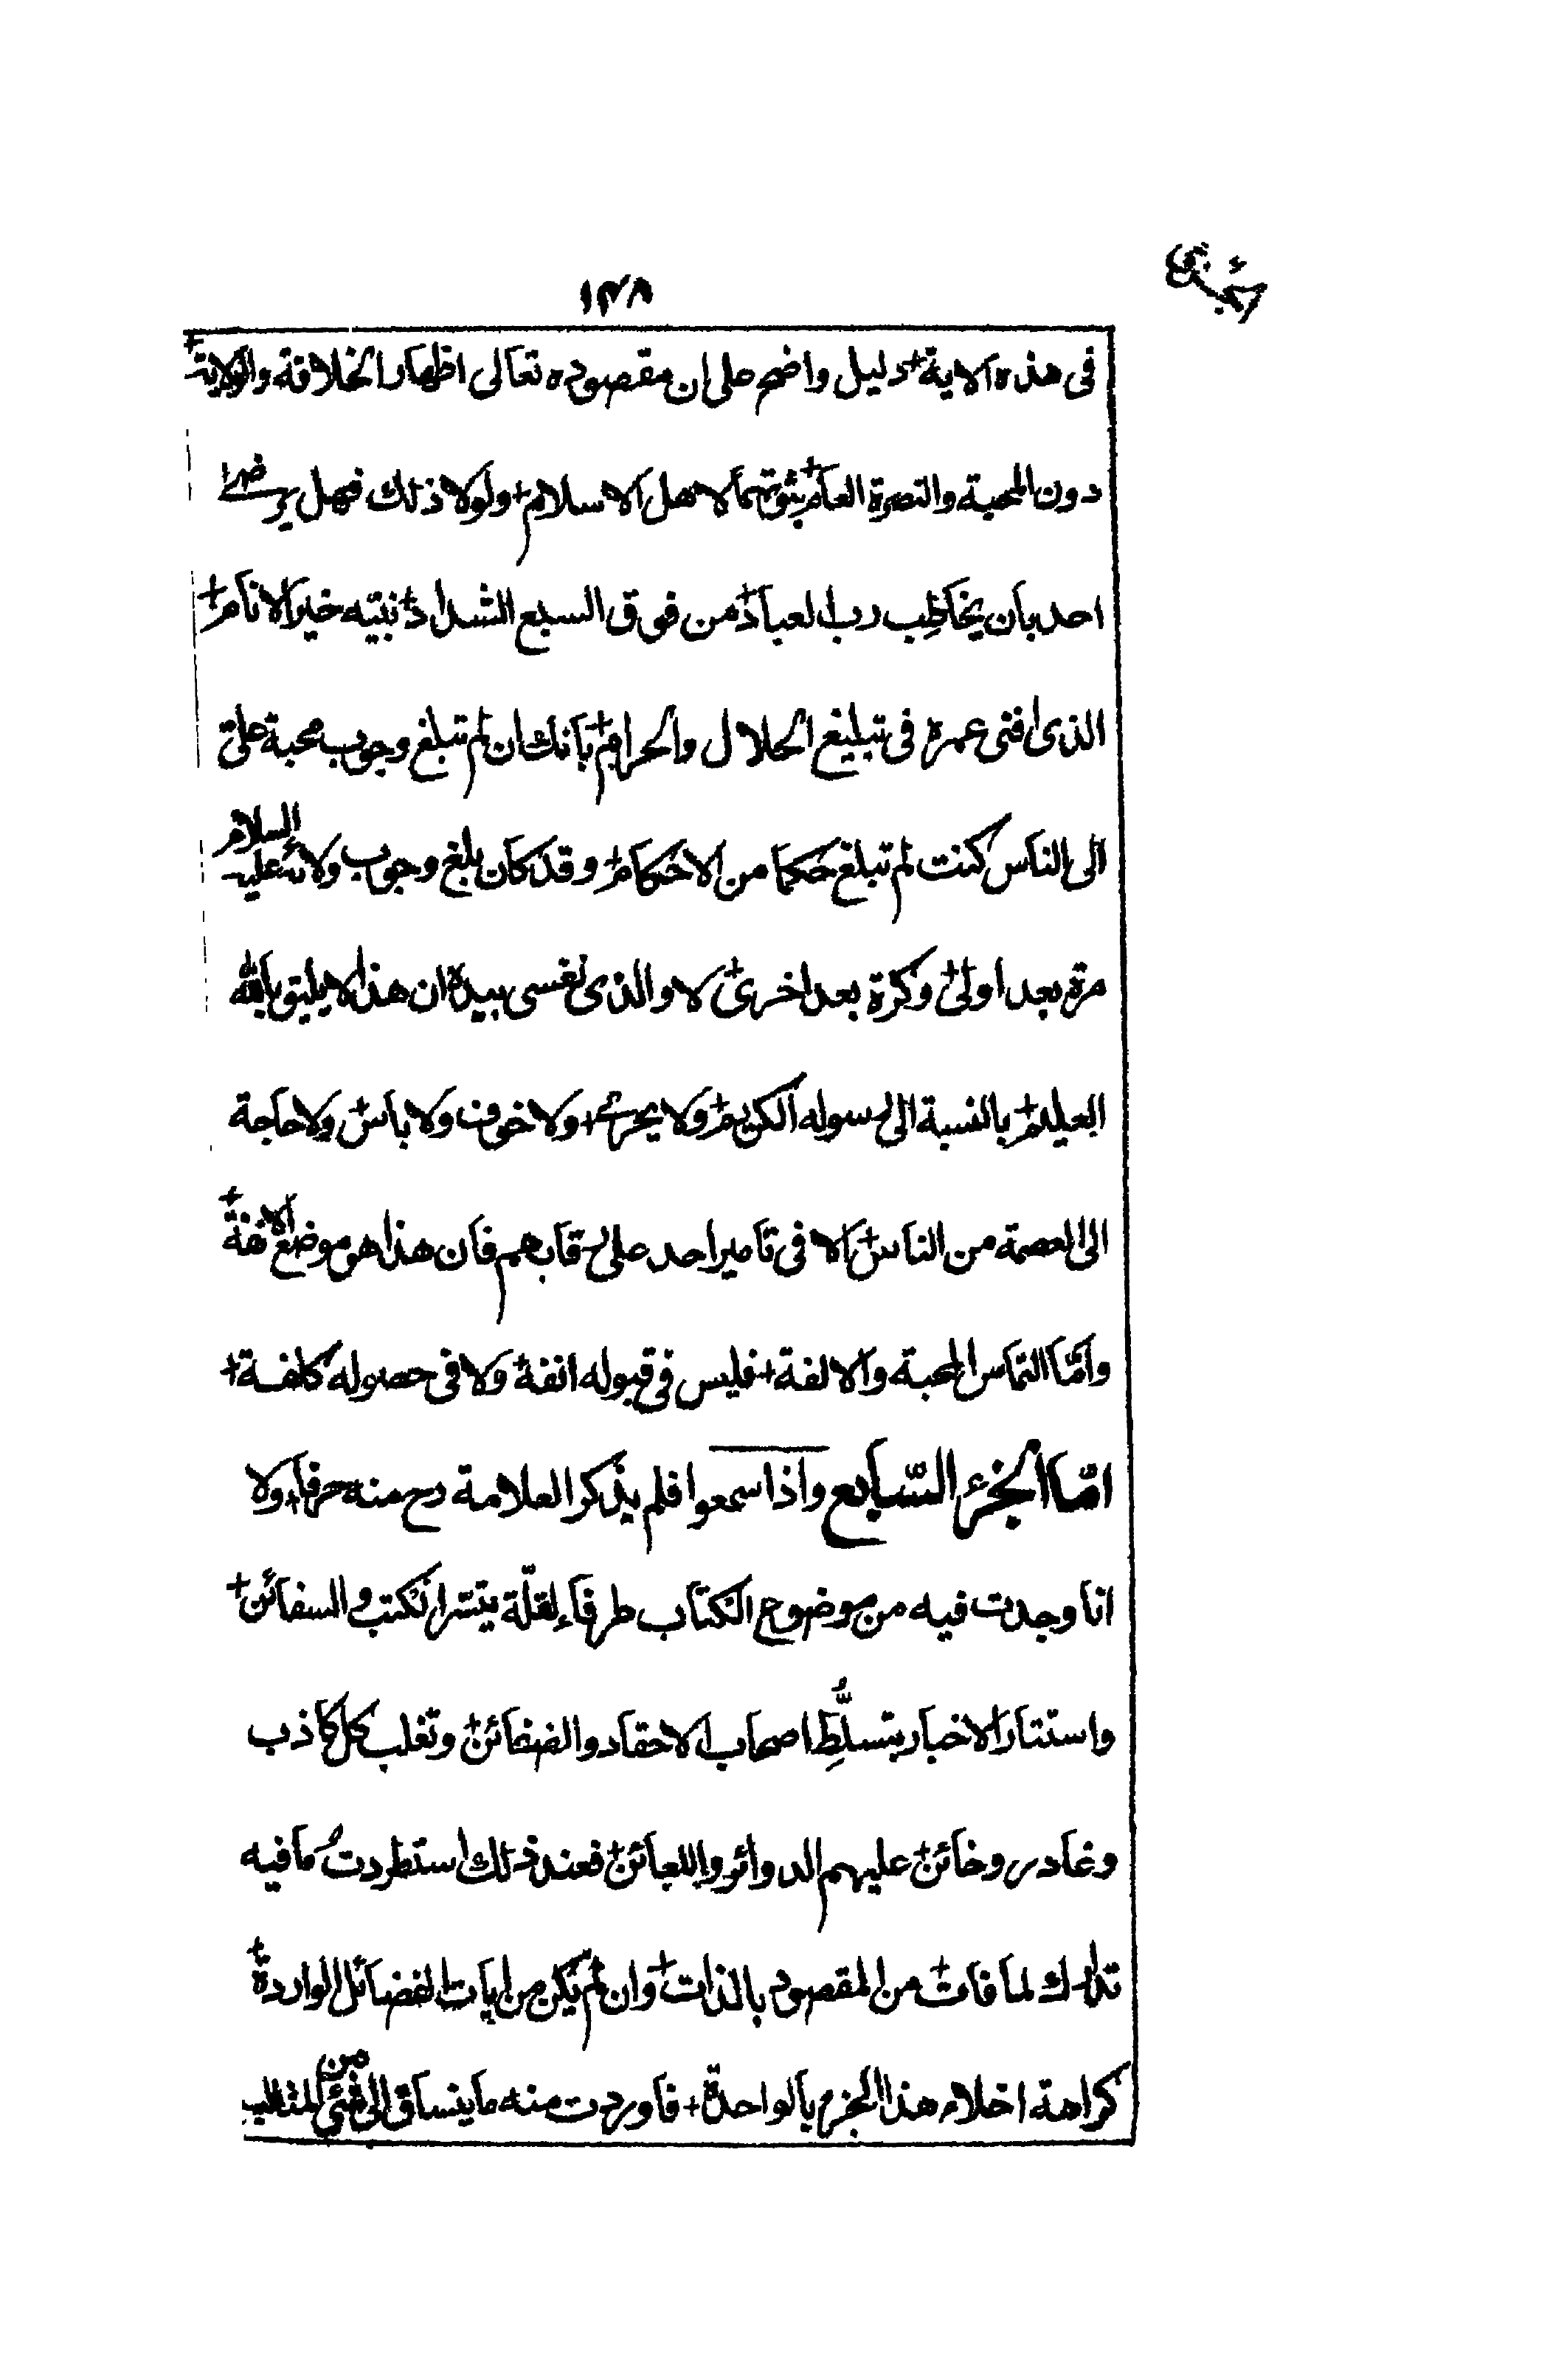 ١٣٨
فى هذه الاية + دليل واضح على ان مقصوده تعالى اظهار الخلافة والولاية +
دون المحبة والنصرة العام ثبوتهما لاهل الاسلام + ولولا ذلك فهل يرضى
احد بان يخاطب رب العباد + من فوق السبع الشداد + نبيه خير الانام +
الذى افنى عمره فى تبليغ الحلال والحرام + بانك ان لم تبلغ وجوب محبة على
الى الناس كنت لم تبلغ حكما من الاحكام + وقد كان بلغ وجوب ولائه عليه السلام
مرة بعد اولى + وكرة بعد اخرى + لا والذى نفسى بيده ان هذا لا يليق بالله
العليم + بالنسبة الى رسوله الكريم + ولا يحرى + ولا خوف ولا باس + ولا حاجة
الى العصمة من الناس + الا فى تامير احد على رقابهم فان هذا هو موضع الانفة +
واما التماس المحبة والالفة + فليس فى قبوله انفة + ولا فى حصوله كلفة +
امّا الجزء السّابع واذا سمعوا فلم يذكر العلامة رح منه حرفا + ولا
انا وجدت فيه من موضوع الكتاب طرفا + لقلّة تيسّر الكتب والسفائن +
واستتار الاخبار بتسلُّطِ اصحاب الاحقاد والضغائن + وتغلب كل كاذب
وغادر وخائن + عليهم الدوائر واللعائن + فعند ذلك استطردتُ ما فيه
تدارك لما فات + من المقصود بالذات + وان لم يكن من ايات الفضائل الواردة +
كراهة اخلاء هذا الجزء بالواحدة + فاوردت منه ما ينساق الى شئ من المثالب